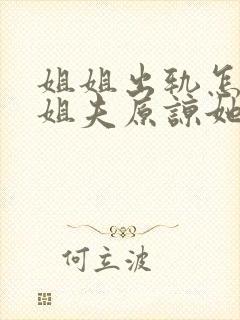 姐姐出轨怎
姐夫原谅她
何立波